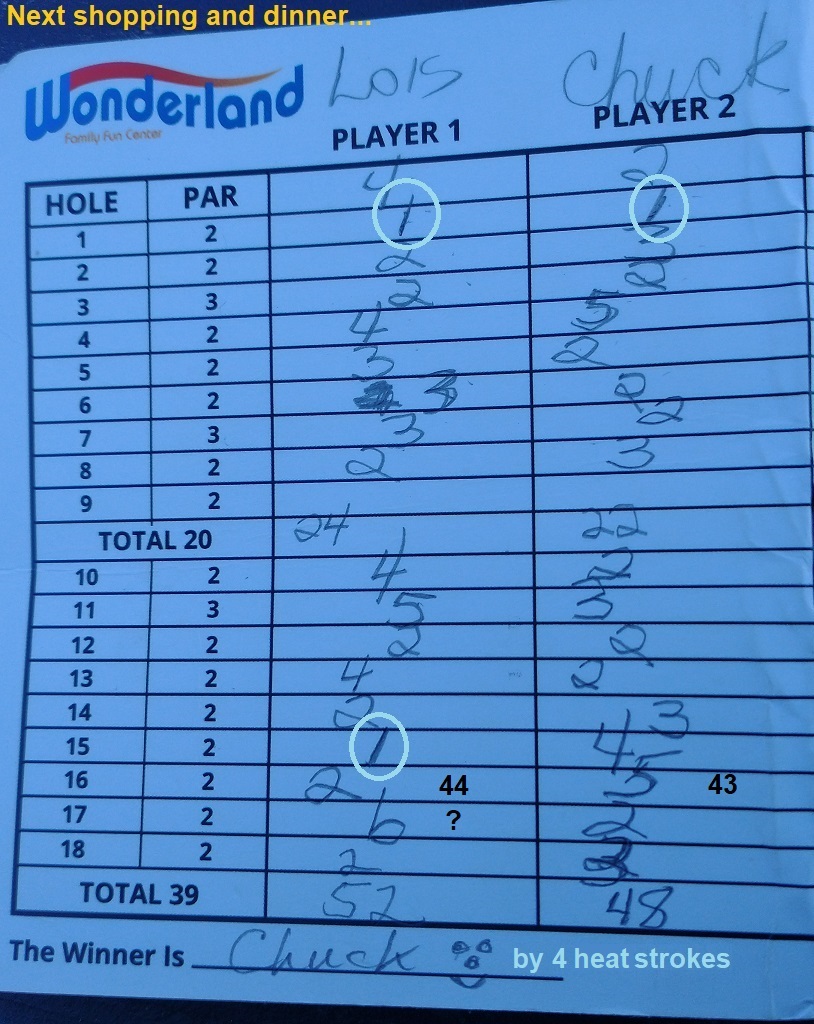 Next shopping and dinner...
Wonderland
Family Fun Center
Lois Chuck
PLAYER 1 PLAYER 2
HOLE PAR
1 2 4 2
2 2 1 1
3 3 2 3
4 2 2 2
5 2 4 5
6 2 3 2
7 3 3 2
8 2 3 2
9 2 2 3
TOTAL 20 24 22
10 2 4 2
11 3 5 3
12 2 2 2
13 2 4 2
14 2 2 3
15 2 1 4
16 2 2 44 5 43
17 2 6 ? 2
18 2 2 3
TOTAL 39 52 48
The Winner Is Chuck by 4 heat strokes